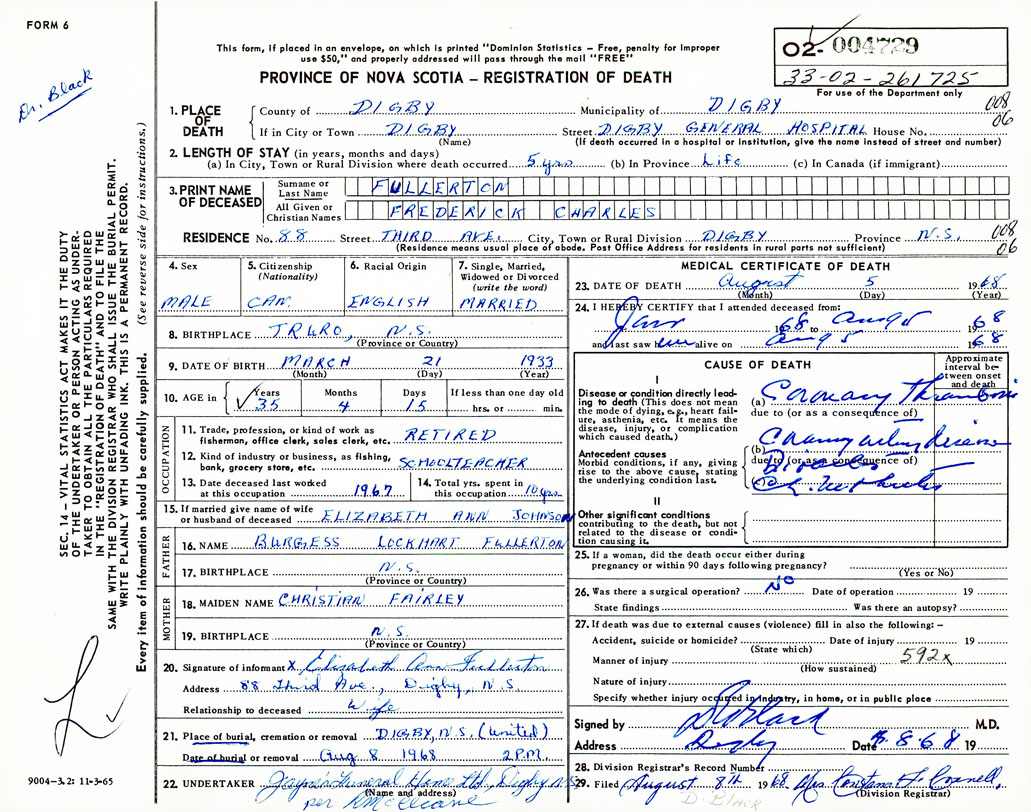 FORM 6
Dr. Black
This form, if placed in an envelope, on which is printed "Dominion Statistics – Free, penalty for improper
use $50," and properly addressed will pass through the mail "FREE"
PROVINCE OF NOVA SCOTIA – REGISTRATION OF DEATH
02- 004729
33-02-261725
For use of the Department only
SEC. 14 – VITAL STATISTICS ACT MAKES IT THE DUTY
OF THE UNDERTAKER OR PERSON ACTING AS UNDER-
TAKER TO OBTAIN ALL THE PARTICULARS REQUIRED
IN THE "REGISTRATION OF DEATH" AND TO FILE THE
SAME WITH THE DIVISION REGISTRAR WHO SHALL ISSUE THE BURIAL PERMIT.
WRITE PLAINLY WITH UNFADING INK. THIS IS A PERMANENT RECORD.
Every item of information should be carefully supplied. (See reverse side for instructions.)
1. PLACE OF DEATH
County of DIGBY Municipality of DIGBY 008
06
If in City or Town DIGBY Street DIGBY GENERAL HOSPITAL House No.
(Name) (If death occurred in a hospital or institution, give the name instead of street and number)
2. LENGTH OF STAY (in years, months and days)
(a) In City, Town or Rural Division where death occurred 5 yrs (b) In Province Life (c) In Canada (if immigrant)
3. PRINT NAME OF DECEASED
Surname or Last Name FULLERTON
All Given or Christian Names FREDERICK CHARLES
RESIDENCE No. 88 Street THIRD AVE. City, Town or Rural Division DIGBY Province N.S. 008
06
(Residence means usual place of abode. Post Office Address for residents in rural parts not sufficient)
4. Sex
MALE
5. Citizenship
(Nationality)
CAN.
6. Racial Origin
ENGLISH
7. Single, Married,
Widowed or Divorced
(write the word)
MARRIED
8. BIRTHPLACE TRURO, N.S.
(Province or Country)
9. DATE OF BIRTH MARCH 21 1933
(Month) (Day) (Year)
10. AGE in
Years Months Days If less than one day old
35 4 15 hrs. or min.
OCCUPATION
11. Trade, profession, or kind of work as
fisherman, office clerk, sales clerk, etc. RETIRED
12. Kind of industry or business, as fishing,
bank, grocery store, etc. SCHOOLTEACHER
13. Date deceased last worked
at this occupation 1967
14. Total yrs. spent in
this occupation 10 yrs
15. If married give name of wife
or husband of deceased ELIZABETH ANN JOHNSON
FATHER
16. NAME BURGESS LOCKHART FULLERTON
17. BIRTHPLACE N.S.
(Province or Country)
MOTHER
18. MAIDEN NAME CHRISTIAN FAIRLEY
19. BIRTHPLACE N.S.
(Province or Country)
20. Signature of informant X Elizabeth Ann Fullerton
Address 88 Third Ave., Digby, N.S.
Relationship to deceased Wife
21. Place of burial, cremation or removal DIGBY, N.S. (United)
Date of burial or removal Aug 8 1968 2 P.M.
22. UNDERTAKER Jayne's Funeral Home Ltd. Digby N.S.
(Name and address)
per
9004-3.2: 11-3-65
MEDICAL CERTIFICATE OF DEATH
23. DATE OF DEATH August 5 1968
(Month) (Day) (Year)
24. I HEREBY CERTIFY that I attended deceased from:
Jan 1968 to Aug 5 1968
and last saw him alive on Aug 5 1968
CAUSE OF DEATH
Approximate
interval be-
tween onset
and death
I
Disease or condition directly lead-
ing to death (This does not mean
the mode of dying, e.g., heart fail-
ure, asthenia, etc. It means the
disease, injury, or complication
which caused death.)
(a) Coronary Thrombosis
due to (or as a consequence of)
Antecedent causes
Morbid conditions, if any, giving
rise to the above cause, stating
the underlying condition last.
(b) Coronary artery disease
due to (or as a consequence of)
Ch. Nephritis
II
Other significant conditions
contributing to the death, but not
related to the disease or condi-
tion causing it.
25. If a woman, did the death occur either during
pregnancy or within 90 days following pregnancy?
(Yes or No)
26. Was there a surgical operation? No Date of operation 19
State findings Was there an autopsy?
27. If death was due to external causes (violence) fill in also the following: –
Accident, suicide or homicide? Date of injury 19
(State which)
Manner of injury 592x
(How sustained)
Nature of injury
Specify whether injury occurred in industry, in home, or in public place
Signed by Black M.D.
Address Digby Date 8-68 19
28. Division Registrar's Record Number
29. Filed August 8th 1968 Mrs.
(Division Registrar)
D. Black